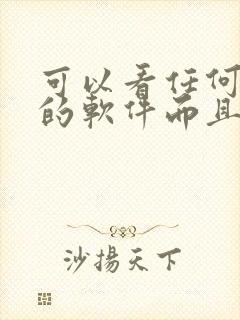 可以看任何
的軟件而且
沙揚天下